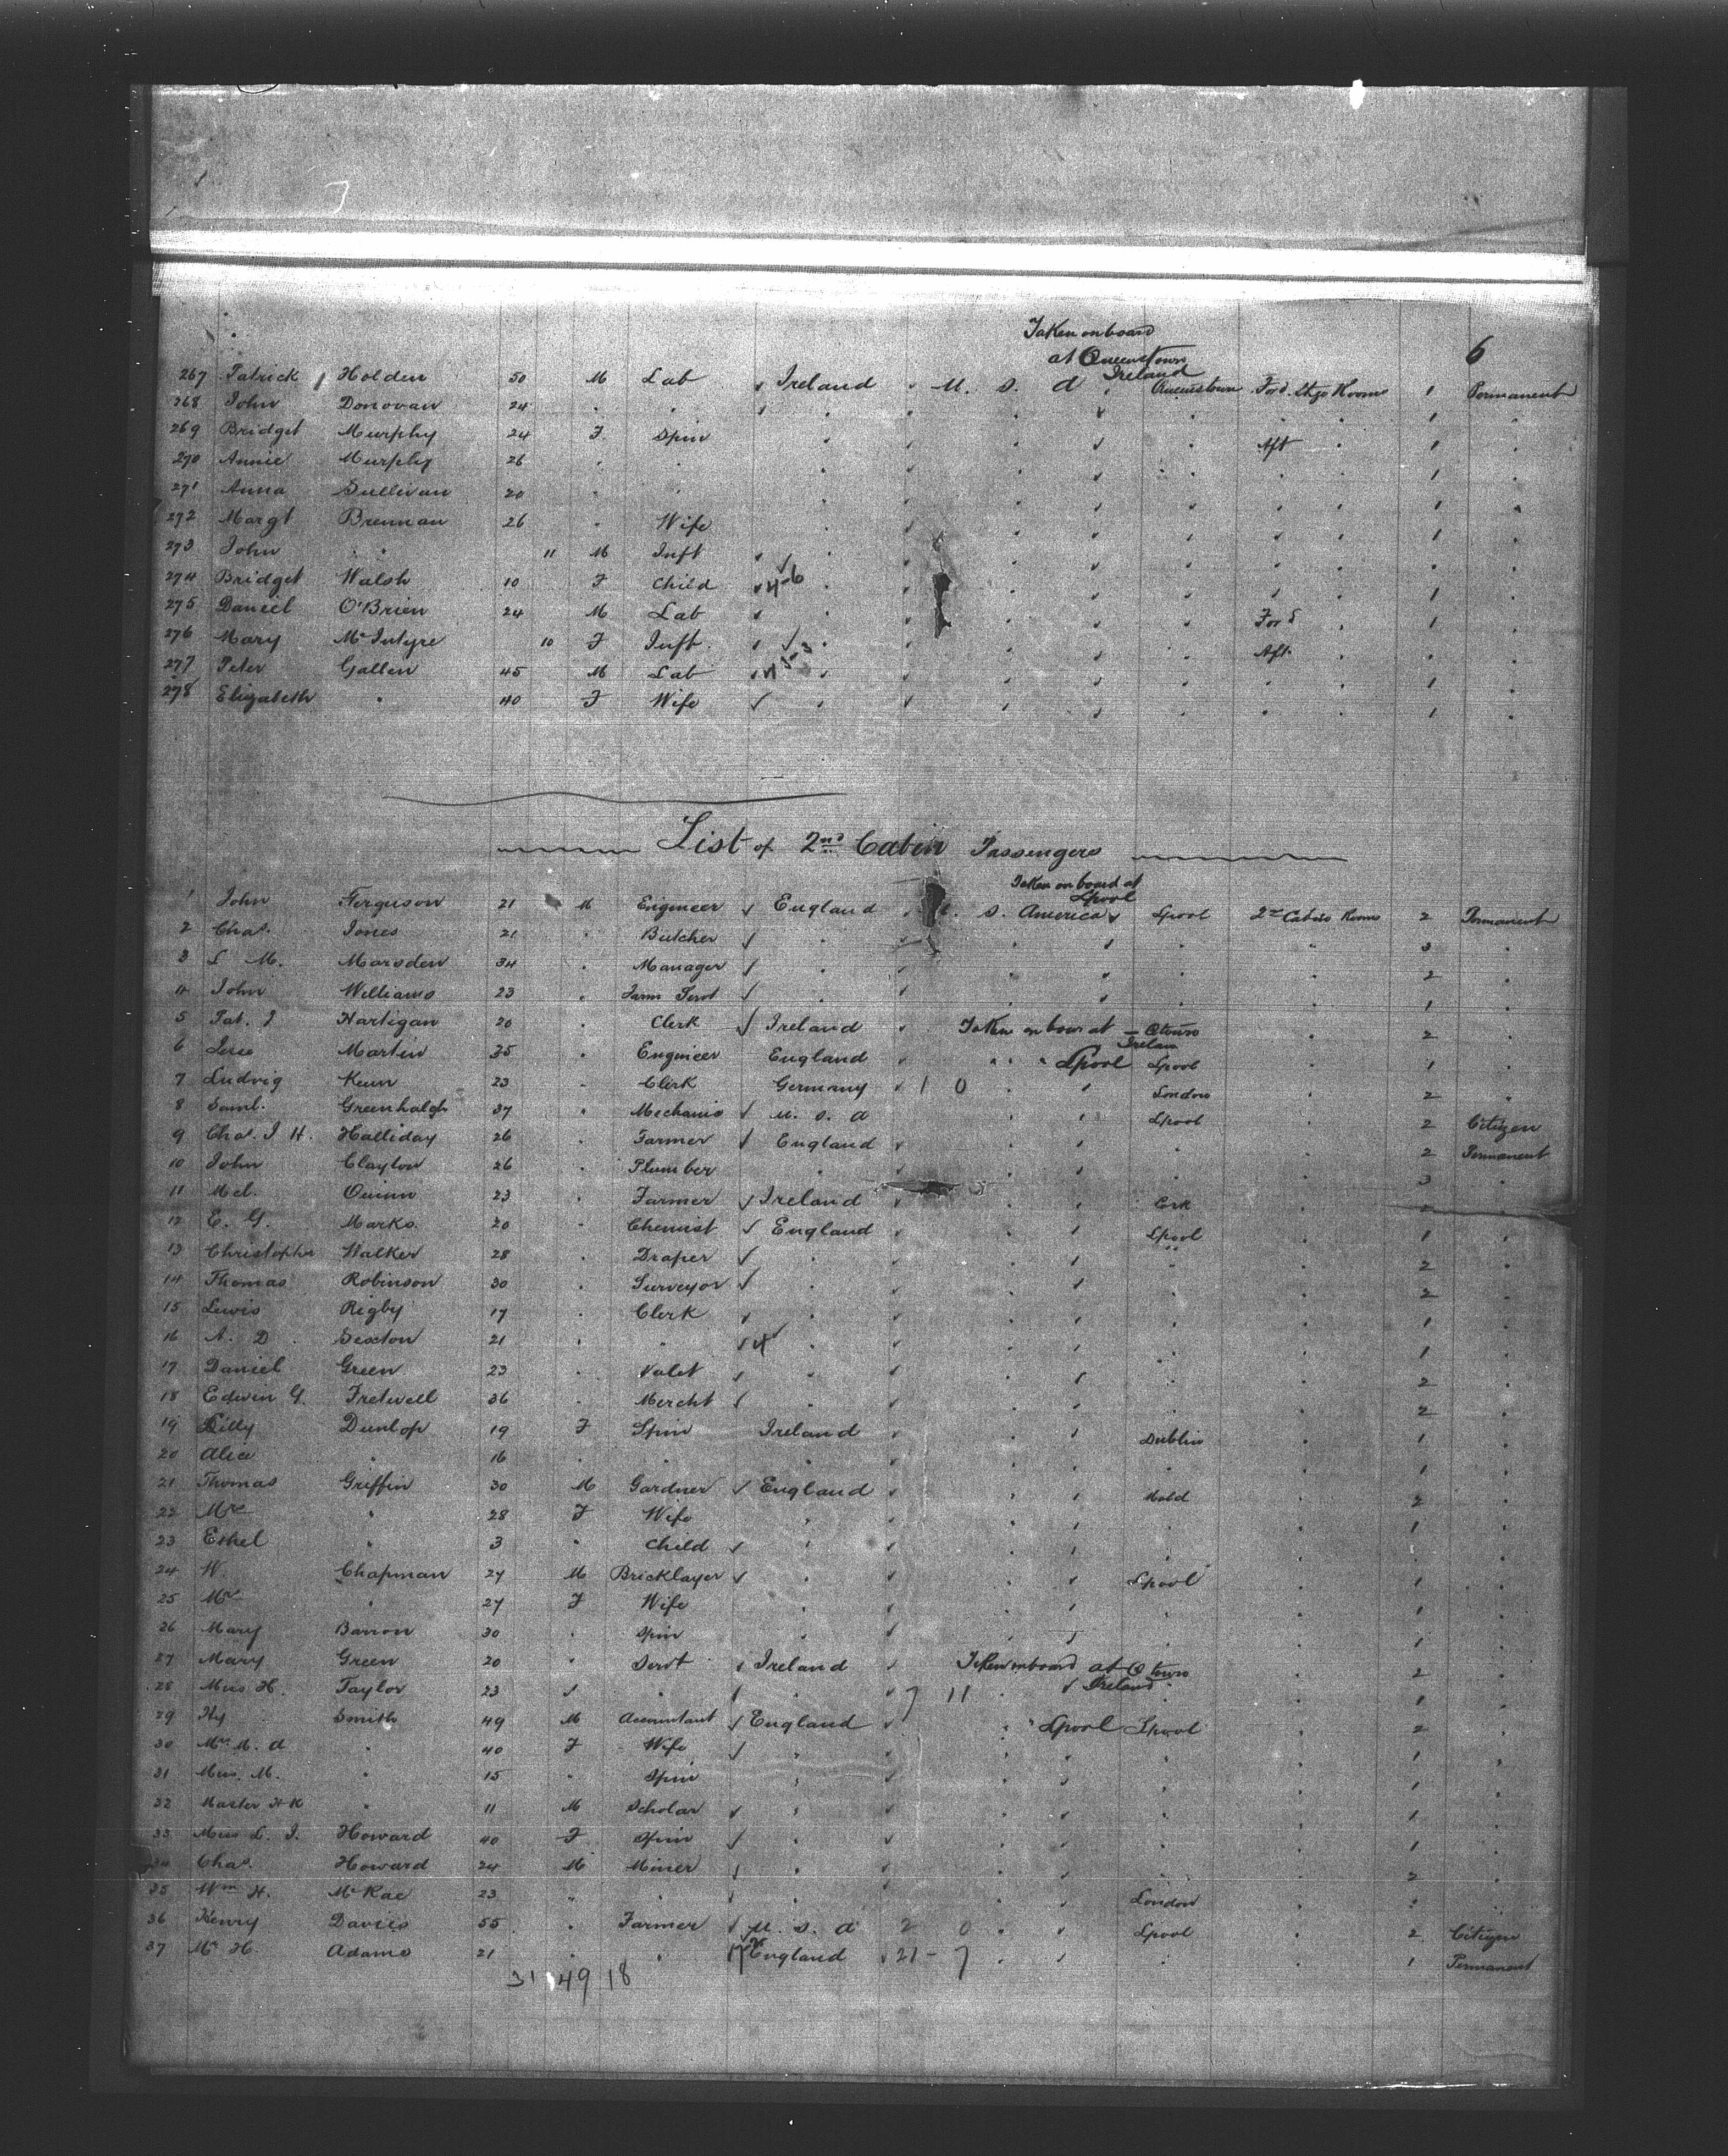 Taken on board
at Queenstown
Ireland
6
267 Patrick Holden 50 M Lab Ireland U. S. A Queenstown Ford. Stge Rooms 1 Permanent
268 John Donovan 24 " " " 1 "
269 Bridget Murphy 24 F. Spin " Aft " 1 "
270 Annie Murphy 26 " " " 1 "
271 Anna Sullivan 20 " " " 1 "
272 Margt Brennan 26 " Wife " 1 "
273 John " " 11 M Inft " "
274 Bridget Walsh 10 F Child 4-6 " 1 "
275 Daniel O'Brien 24 M Lab " Ford " 1 "
276 Mary McIntyre 10 F Inft. " Aft. " "
277 Peter Gallen 45 M Lab " 1 "
278 Elizabeth " 40 F Wife " 1 "
List of 2nd Cabin Passengers
Taken on board at
Lpool
1 John Ferguson 21 M Engineer England S. America Lpool 2nd Cabin Rooms 2 Permanent
2 Chas. Jones 21 " Butcher " " 3 "
3 L M. Marsden 34 " Manager " " 2
4 John Williams 23 " Farm Servt " 1
5 Pat. J Hartigan 20 " Clerk Ireland Taken on board at Qtown 2
Irelan
6 Martin 35 " Engineer England " " " Lpool Lpool 1
7 Ludvig 23 " Clerk Germany 1 0 " London 2 "
8 Saml. Greenhalgh 37 " Mechanic U. S. A " Lpool 2 Citizen
9 Chas. J H. Halliday 26 " Farmer England " 2 Permanent
10 John Clayton 26 " Plumber " " 3 "
11 Mcl. Quinn 23 " Farmer Ireland " Cork "
12 E. G. Marks. 20 " Chemist England " Lpool " 1 "
13 Christopher Walker 28 " Draper " " 2 "
14 Thomas Robinson 30 " Surveyor " " 2 "
15 Lewis Rigby 17 " Clerk " " 1 "
16 A. D. Sexton 21 " " " 1 "
17 Daniel Green 23 " Valet " " 2 "
18 Edwin G. Fretwell 36 " Mercht " " 2 "
19 Lilly Dunlop 19 F Spin Ireland " Dublin " 1 "
20 Alice " 16 " " " " 1 "
21 Thomas Griffin 30 M Gardner England " Mold " 2 "
22 Mrs " 28 F Wife " " 1 "
23 Ethel " 3 " Child " " "
24 W. Chapman 27 M Bricklayer " Lpool " 1 "
25 Mrs " 27 F Wife " " 1 "
26 Mary Barron 30 " Spin " " 1 "
27 Mary Green 20 " Servt Ireland Taken on board at Qtown " 2 "
Ireland
28 Miss H. Taylor 23 " " 7 11 " 1 "
29 Hy Smith 49 M Accountant England " Lpool Lpool " 2 "
30 Mrs M. A " 40 F Wife " " 1 "
31 Miss. M. " 15 " Spin " " 1 "
32 Master H K " 11 M Scholar " " 1 "
33 Miss L. J. Howard 40 F Spin " " 1 "
34 Chas. Howard 24 M Miner " " 2 "
35 Wm H. McRae 23 " " " London " "
36 Henry Davies 55 " Farmer U. S. A 2 0 " Lpool " 2 Citizen
37 Mr H. Adams 21 " " England 21-7 " " 1 Permanent
31 49 18